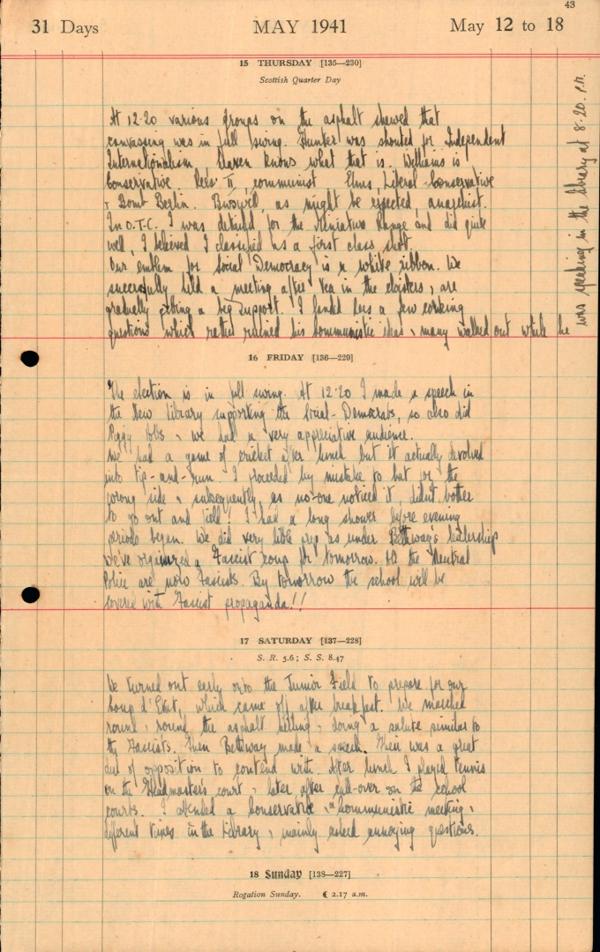 43
31 Days MAY 1941 May 12 to 18
15 THURSDAY [135—230]
Scottish Quarter Day
At 12·20 various groups on the asphalt shewed that
canvassing was in full swing. Hunter was shouted for Independent
Internationalism, Heaven knows what that is. Williams is
Conservative. Rees II, communist Elms, Liberal-Conservative
+ Bomb Berlin. Buswell, as might be expected, anarchist.
In O.T.C. I was detailed for the Miniature Range and did quite
well, I believed I classified as a first class shot.
Our emblem for Social Democracy is a white ribbon. We
successfully held a meeting after tea in the cloisters, are
gradually getting a big support. I handed Rees a few corking
questions which rather ruined his communistic ideas, many walked out while he
was speaking in the library at 8·20. p.m.
16 FRIDAY [136—229]
The election is in full swing. At 12·20 I made a speech in
the New Library supporting the Social-Democrats, so also did
we had a very appreciative audience.
We had a game of cricket after lunch but it actually devolved
into tip-and-run. I proceeded by mistake to bat for the
wrong side & subsequently, as no-one noticed it, didn't bother
to go out and field. I had a long shower before evening
periods began. We did very little prep as under Bettways leadership
We've organized a Fascist coup for tomorrow. All the Neutral
Police are now Fascists. By tomorrow the school will be
covered with Fascist propaganda!!
17 SATURDAY [137—228]
S. R. 5.6; S. S. 8.47
We turned out early onto the Junior Field to prepare for our
Coup d'Etat, which came off after breakfast. We marched
round & round the asphalt yelling & doing a salute similar to
the Fascists. Then Bettway made a speech. There was a great
deal of opposition to contend with. After lunch I played tennis
on the Headmaster's court & later after call-over on the school
courts. I attended a Conservative & a Communistic meeting,
different times in the Library, mainly asked annoying questions.
18 Sunday [138—227]
Rogation Sunday. ☾ 2.17 a.m.